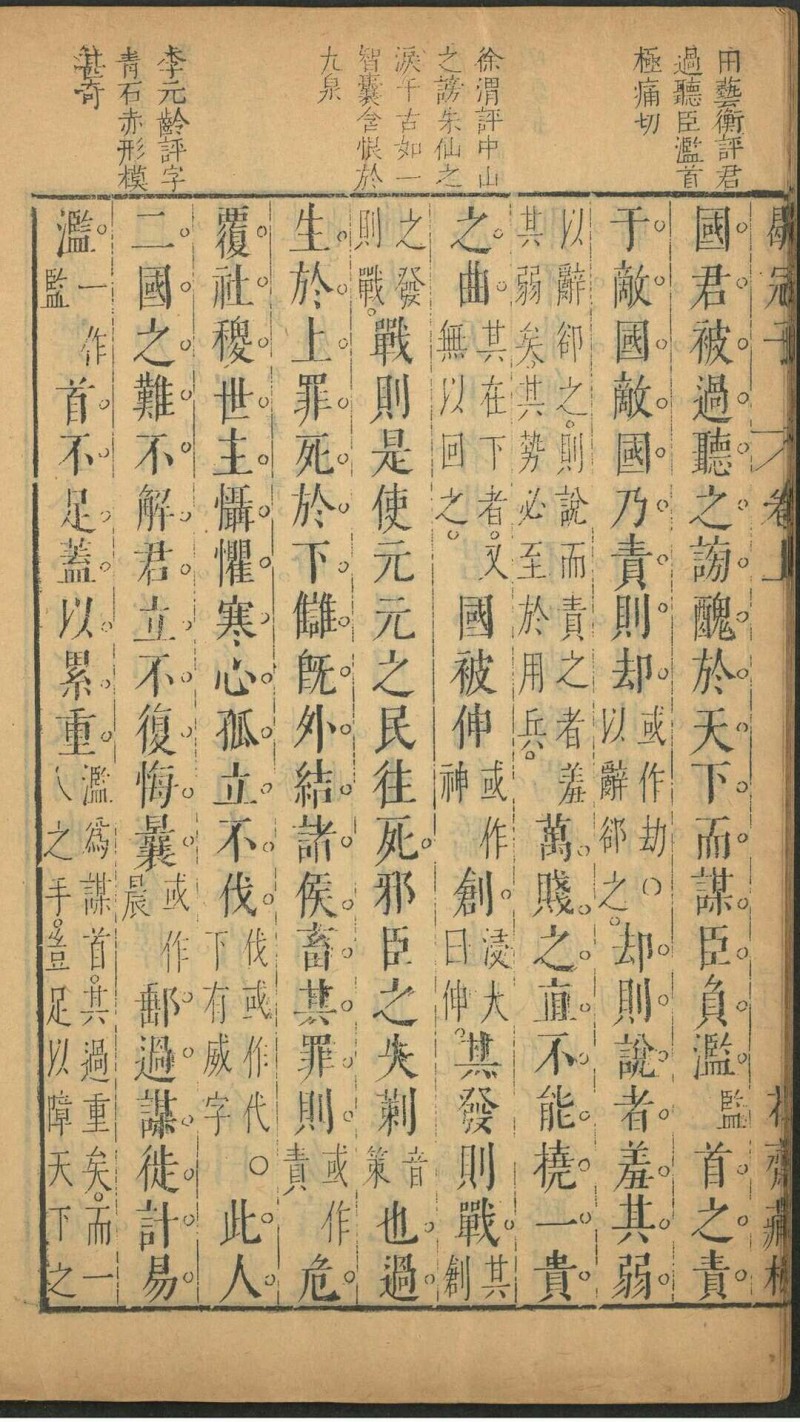 田藝衡評君
過聽臣濫首
極痛切
徐渭評中山
之謗朱仙之
淚千古如一
智囊含恨於
九泉
李元齡評字
靑石赤形模
甚奇
鶡冠子 卷上
國君被過聽之謗醜於天下而謀臣負濫監首之責
于敵國敵國乃責則却或作劫○以辭郤之。却則說者羞其弱
以辭郤之。則說而責之者羞其弱矣。其勢必至於用兵。萬賤之直不能撓一貴
之曲。其在下者。又無以回之。國被伸或作神創。浸大曰伸。其發則戰。其創
之發則戰。戰則是使元元之民往死。邪臣之失莿音策也。過
生於上罪死於下讎旣外結諸侯畜其罪則或作責危
覆社稷世主懾懼寒心孤立不伐伐或作代○下有威字此人
二國之難不解君立不復悔曩或作晨郵過謀徙計易
濫一作監首不足蓋以累重濫爲謀首。其過重矣。而一人之手。豈足以障天下之